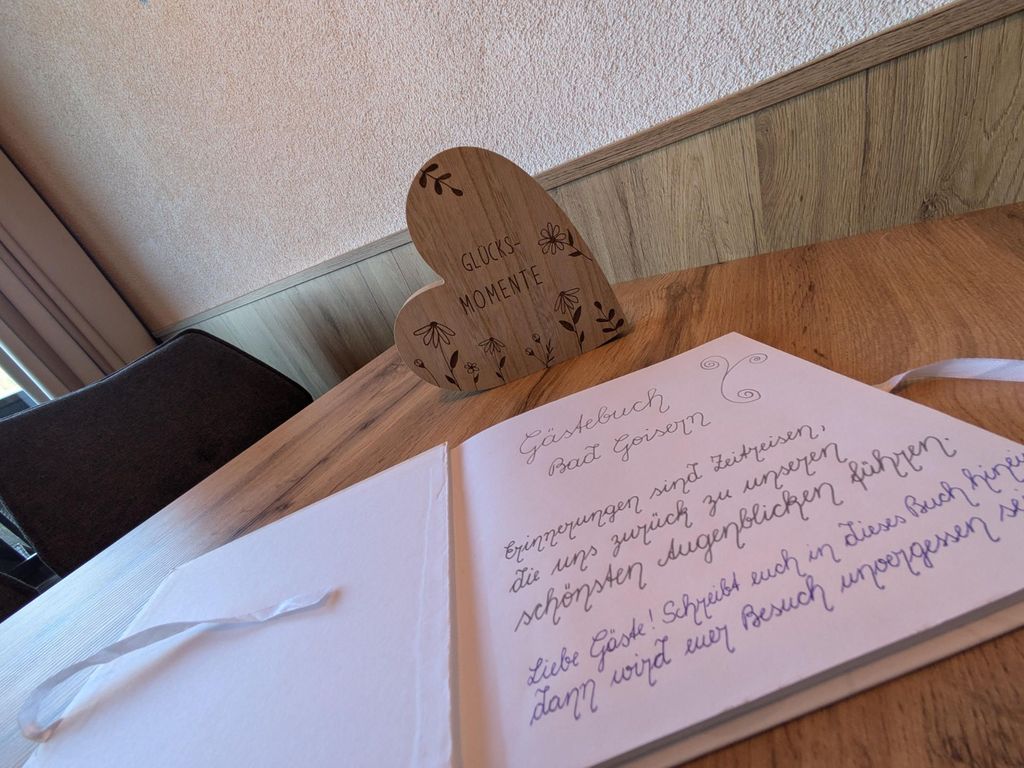 GLÜCKS-
MOMENTE
Gästebuch
Bad Goisern
Erinnerungen sind Zeitreisen,
die uns zurück zu unseren
schönsten Augenblicken führen.
Liebe Gäste! Schreibt euch in dieses Buch hinei
dann wird euer Besuch unvergessen sei